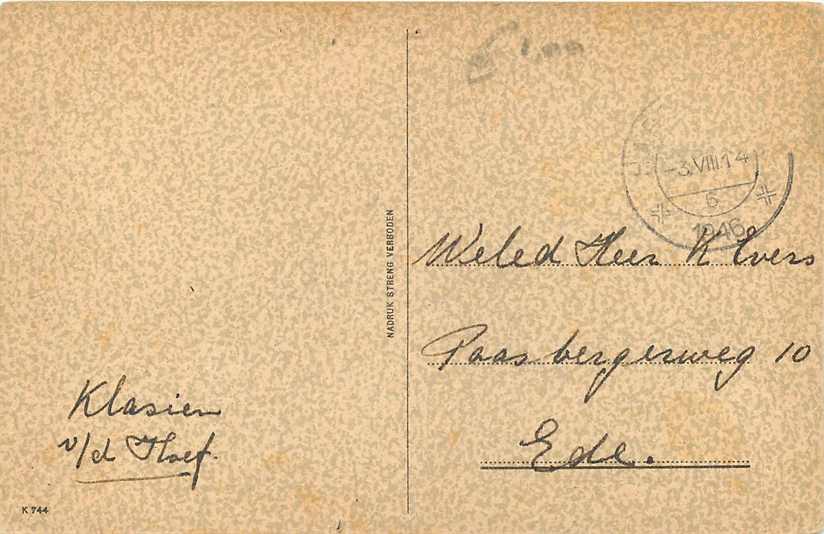 1,00
-3.VIII.14
6
1946
NADRUK STRENG VERBODEN
Weled Heer K Evers
Paasbergerweg 10
Ede.
Klasien
v/d Hoef.
K 744